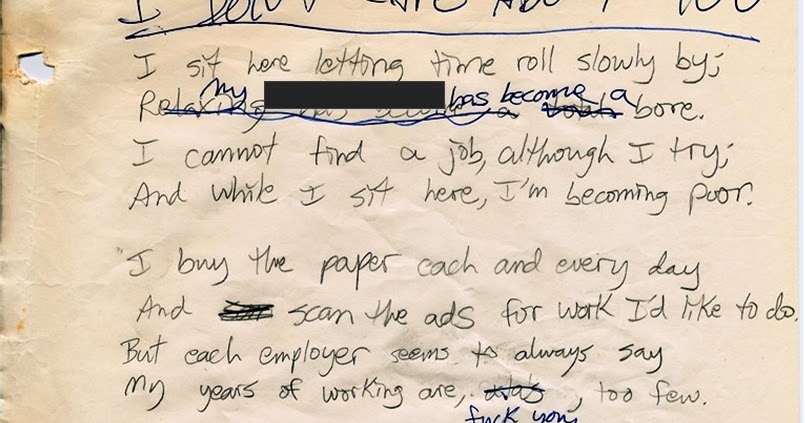 I DON'T CARE ABOUT YOU
I sit here letting time roll slowly by;
My has become a
Relaxing has a bore.
I cannot find a job, although I try;
And while I sit here, I'm becoming poor.
I buy the paper each and every day
And scan the ads for work I'd like to do.
But each employer seems to always say
My years of working are, alas, too few.
fuck you,